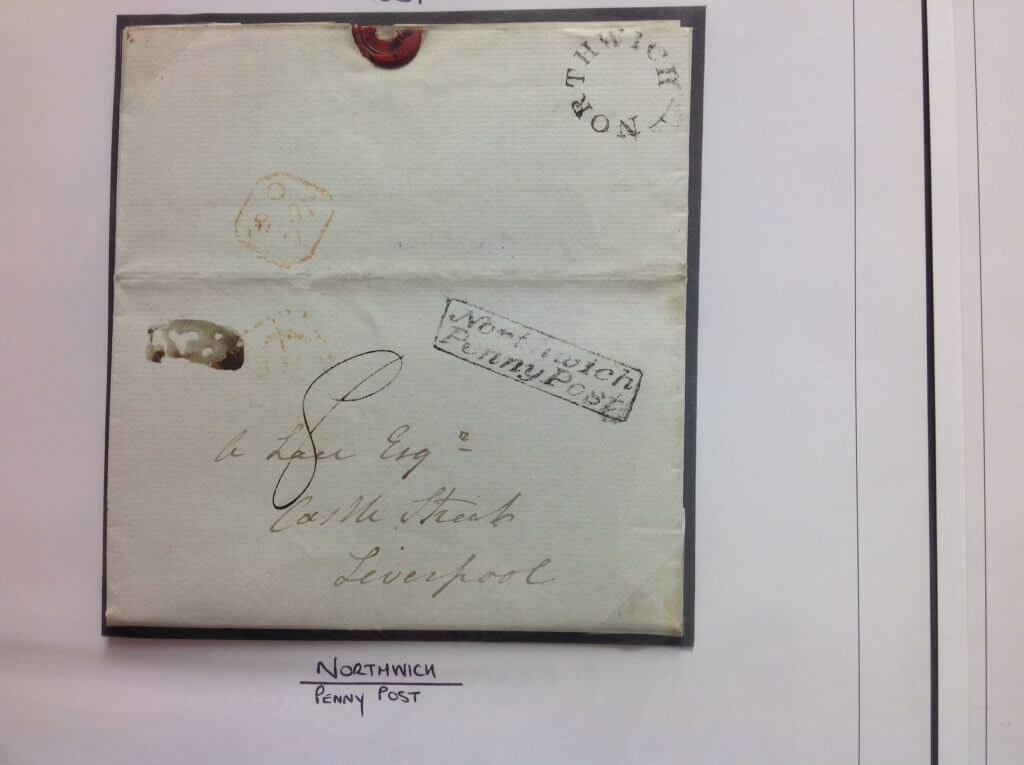 NORTHWICH
Northwich
Penny Post
8
A Lace Esqr
Castle Street
Liverpool
NORTHWICH
PENNY POST